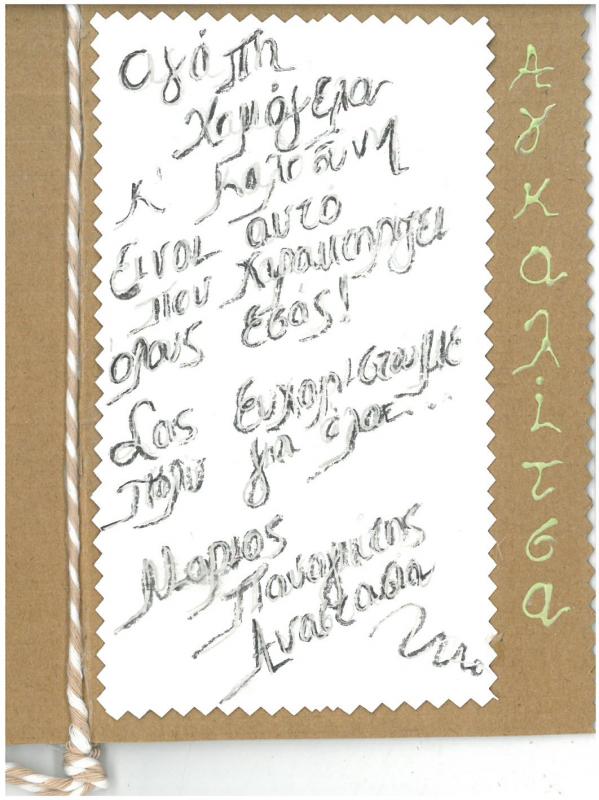 Αγάπη
Χαμόγελα
κ' καλοσύνη
Είναι αυτό
που χαρακτηρίζει
όλους εσάς!
Σας Ευχαριστούμε
Πολύ για όλα...
Μάριος
Παναγιώτης
Αναστασία
Αγκαλίτσα